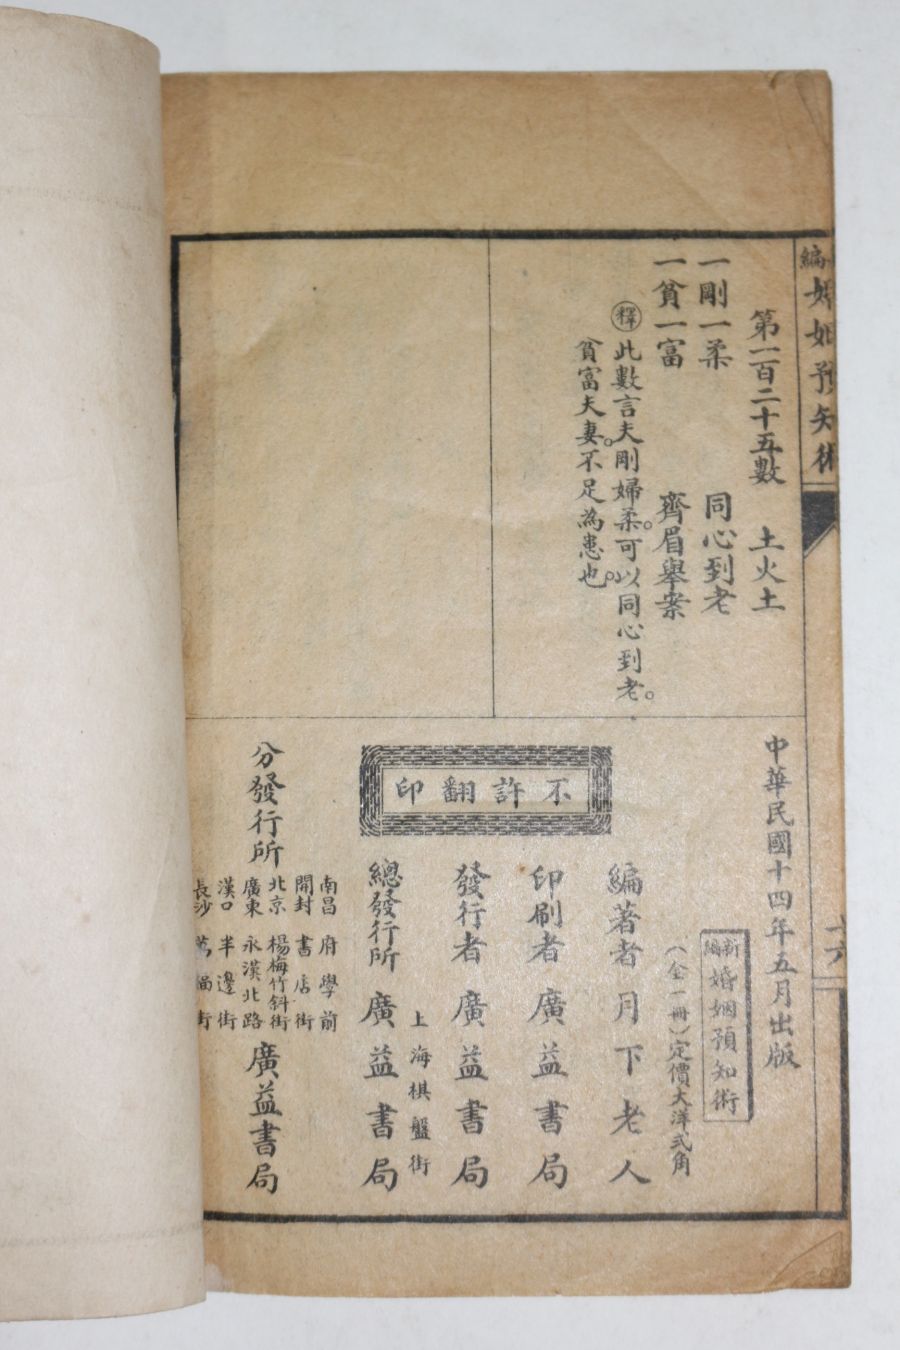 編 婚姻預知術
十六
第一百二十五數　土火土
一剛一柔　同心到老
一貧一富　齊眉舉案
釋 此數言夫剛婦柔。可以同心到老。
貧富夫妻。不足為患也。
中華民國十四年五月出版
新編 婚姻預知術
（全一冊）定價大洋弍角
不許翻印
編著者 月下老人
印刷者 廣益書局
發行者 廣益書局
上海棋盤街
總發行所 廣益書局
分發行所
南昌 府學前
開封 書店街
北京 楊梅竹斜街
廣東 永漢北路
漢口 半邊街
長沙 街
廣益書局